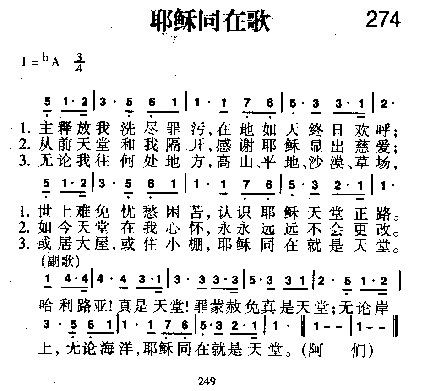 耶稣同在歌 274
1=ᵇA 3/4
5 | 1·2 | 3· 5 | 6 1 | 1· 1 | 7 6 | 5· 3 | 3 1 | 2·
1. 主释放我洗尽罪污,在地如天终日欢呼;
2. 从前天堂和我隔开,感谢耶稣显出慈爱;
3. 无论我往何处地方,高山、平地、沙漠、草场,
5 | 1·2 | 3· 5 | 6 1 | 1· 1 | 7 6 | 5· 3 | 5 2 | 1·
1. 世上难免忧愁困苦,认识耶稣天堂正路。
2. 如今天堂在我心怀,永永远远不会更改。
3. 或居大屋,或住小棚,耶稣同在就是天堂。
(副歌)
哈利路亚!真是天堂!罪蒙赦免真是天堂;无论岸
上,无论海洋,耶稣同在就是天堂。(阿 们)
249